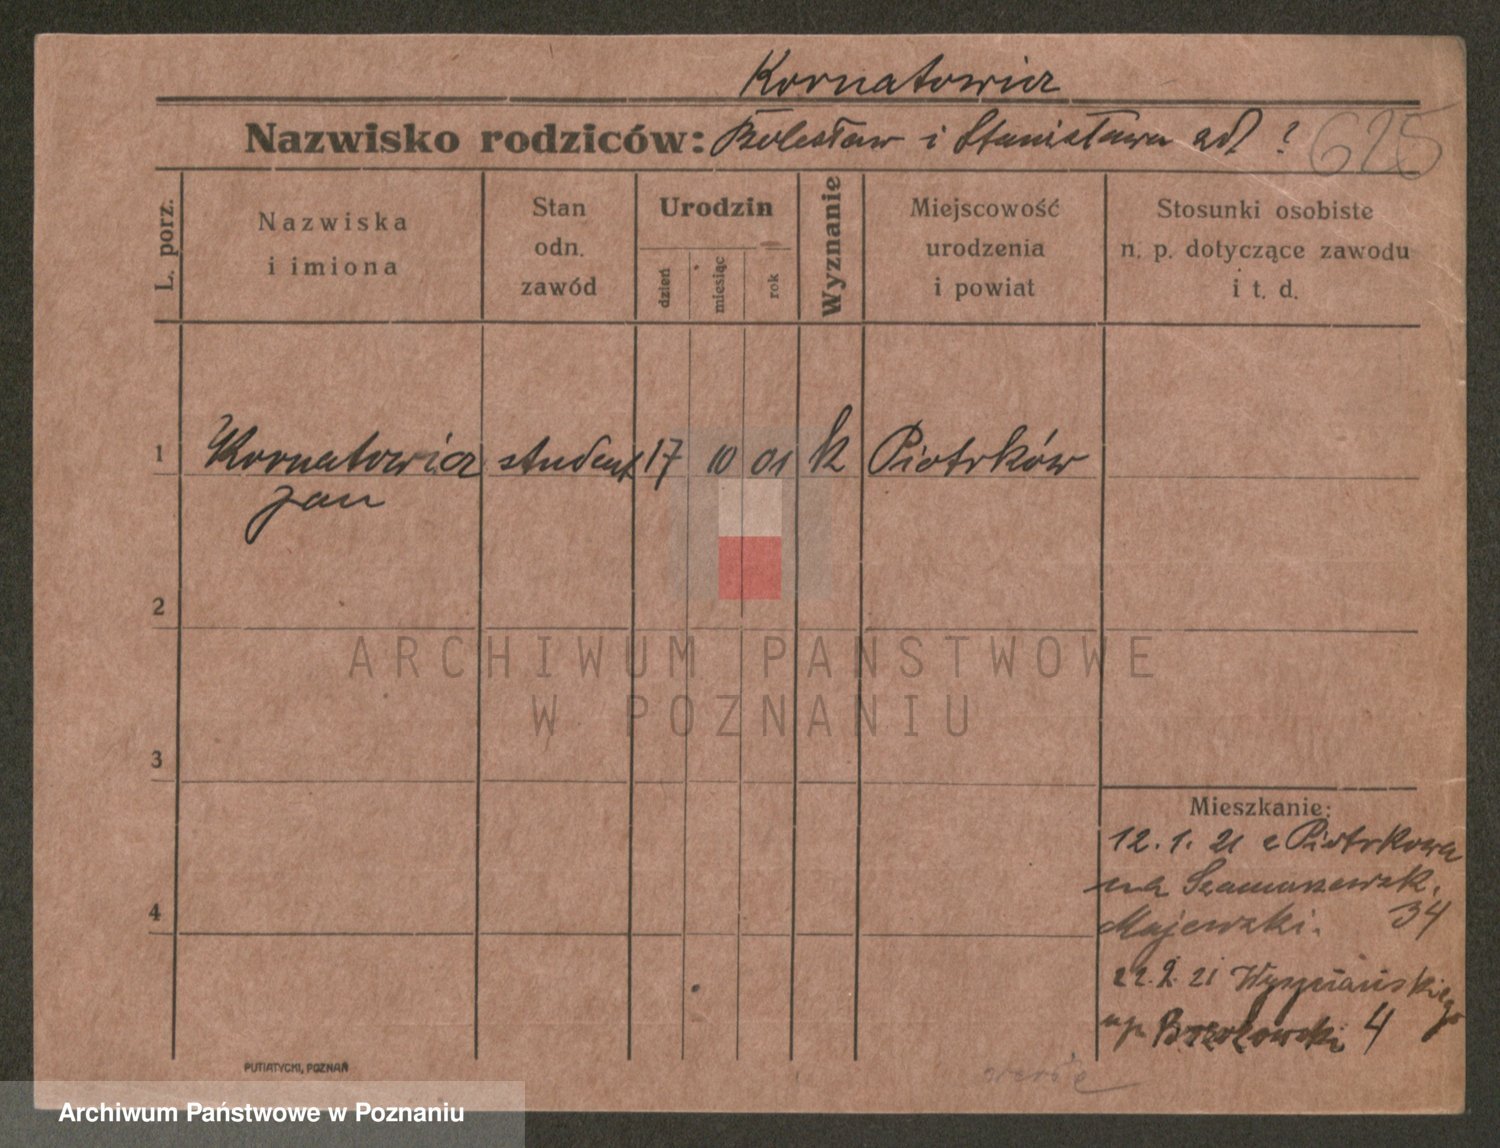 Kornatowicz
Nazwisko rodziców: Bolesław i Stanisława zd ?
625
L. porz.
Nazwiska
i imiona
Stan
odn.
zawód
Urodzin
dzień
miesiąc
rok
Wyznanie
Miejscowość
urodzenia
i powiat
Stosunki osobiste
n. p. dotyczące zawodu
i t. d.
1 Kornatowicz student 17 10 01 k Piotrków
Jan
2
ARCHIWUM PAŃSTWOWE
W POZNANIU
3
4
Mieszkanie:
12.1.21 z Piotrkowa
na Szamarzewsk.
Majewski. 34
22.2.21 Wyspiańskiego
Brzozowski 4
PUTIATYCKI, POZNAŃ
Archiwum Państwowe w Poznaniu